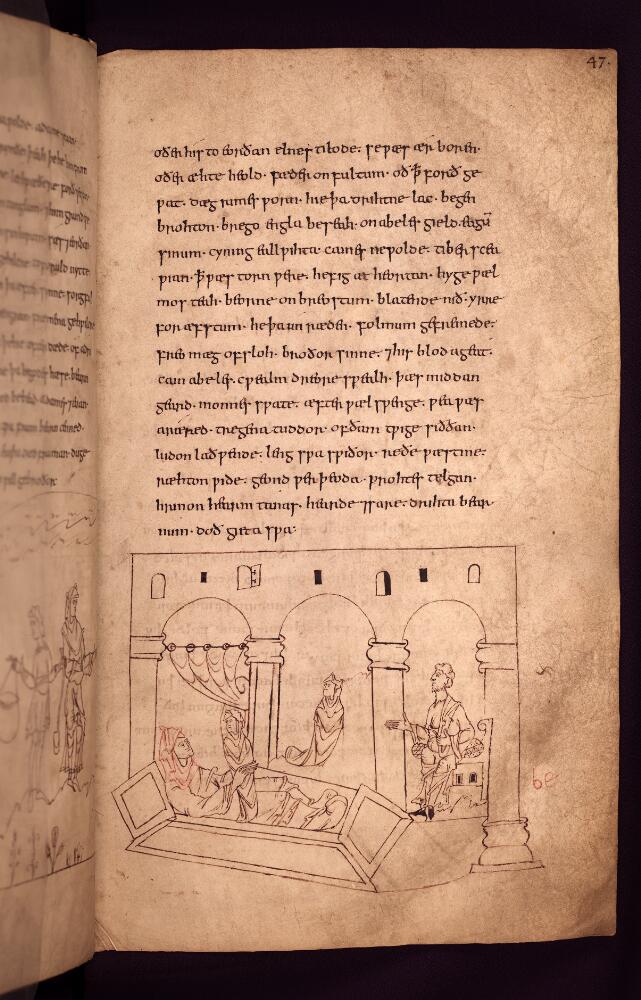 47.
oðer his to eorðan elnes tilode· se ƿæs ær boren·
oðer æhte heold· fæder on fultum· oð ꝥ forð ge
ƿat· dæg rimes ƿorn· hie þa drihtne lac· begen
brohton· brego engla beseah· on abeles gield· eagū
sinum· cyning eall ƿihta· caines ne ƿolde· tiber scea
ƿian· ꝥ ƿæs torn ƿere· hefig æt heortan· hyge ƿæl
mos teah· beorne on breostum· blatende nið· yrre
for æfstum· he þa unræden· folmum gefremede·
freo mæg ofsloh· broðor sinne· ⁊ his blod ageat·
cain abeles· cƿealm dreore sƿealh· þæs middan
geard· monnes sƿate· æfter ƿæl sƿenge· ƿea ƿæs
aræred· tregena tuddor· of ðam tƿige siððan·
ludon lað ƿende· leng sƿa sƿiðor· reðe ƿæstme·
ræhton ƿide· geond ƿer þeoda· ƿrohtes telgan·
hrinon hearm tanas· hearde ⁊ sare· drihta bear
num· doð gieta sƿa·
be